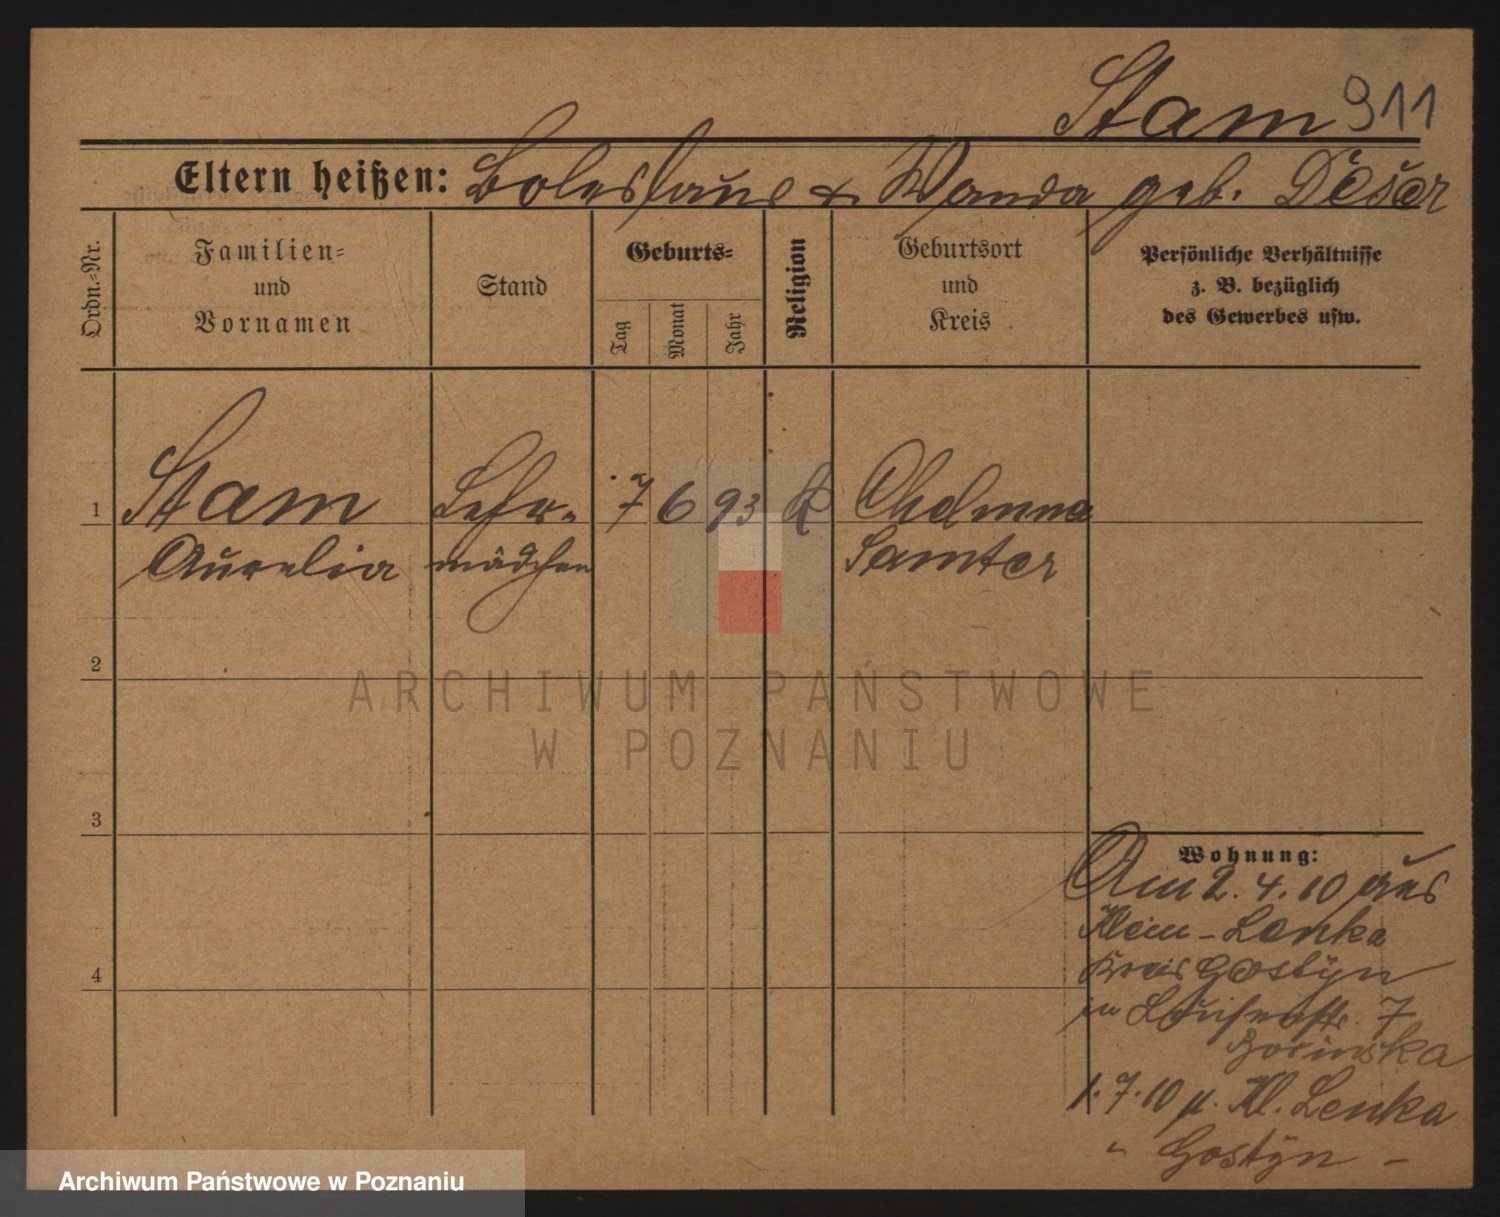 Stam 911
Eltern heißen: Boleslaus & Wanda geb.
Ordn.-Nr.
Familien-
und
Vornamen
Stand
Geburts-
Tag
Monat
Jahr
Religion
Geburtsort
und
Kreis
Persönliche Verhältnisse
z. B. bezüglich
des Gewerbes usw.
1 Stam Lehr- 7 6 93 k Chelmna
Aurelia mädchen Samter
2
3
4
Wohnung:
Am 2. 4. 10 aus
Klein-Lenka
Kreis Gostÿn
Louisenstr. 7
Borinska
1.7.10 n. Kl. Lenka
" Gostÿn -
ARCHIWUM PAŃSTWOWE
W POZNANIU
Archiwum Państwowe w Poznaniu